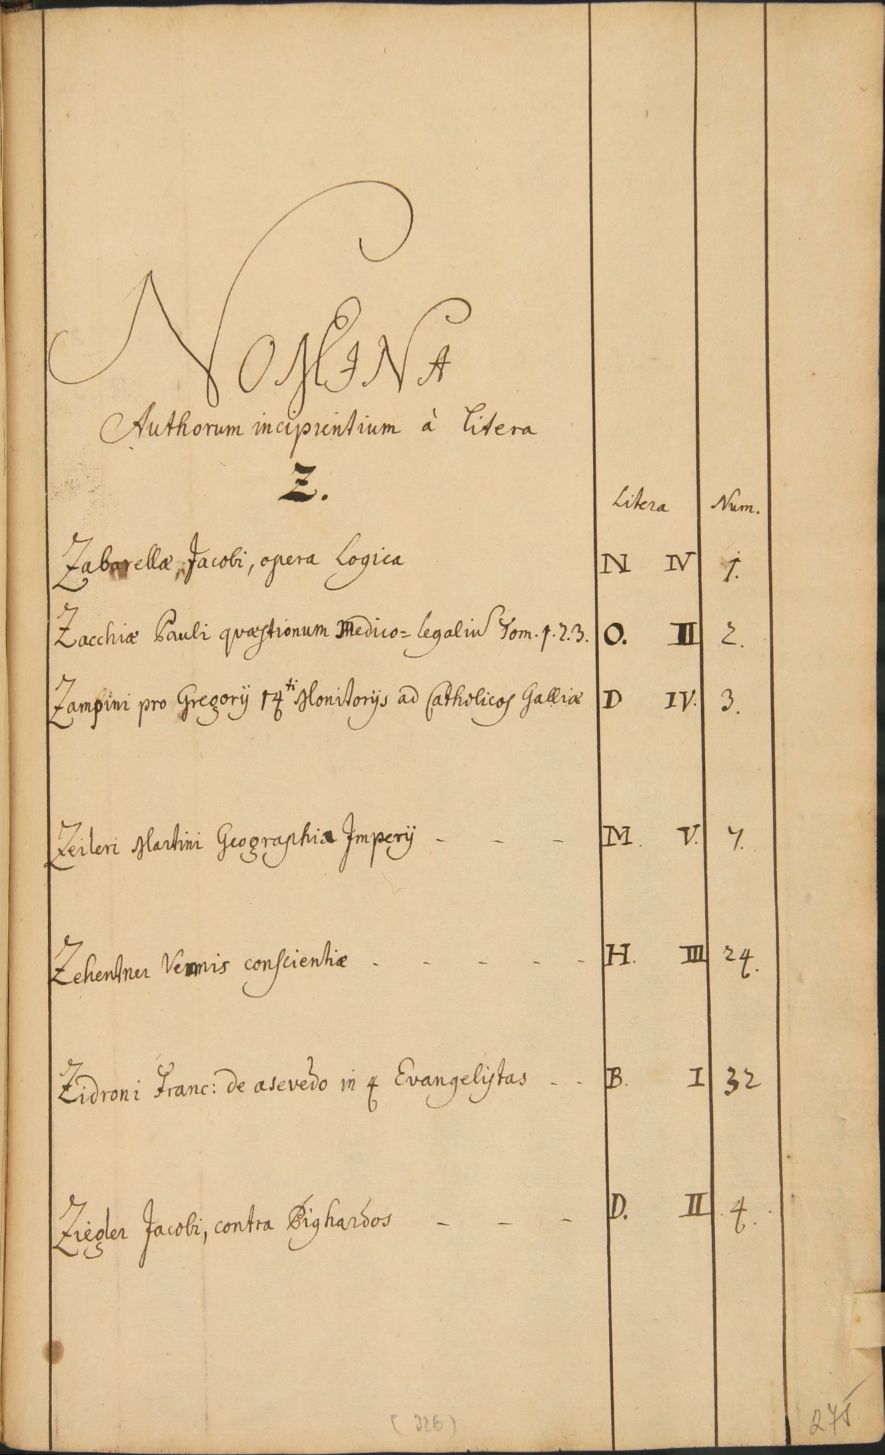 NOMINA
Authorum incipientium à litera
Z.
Litera Num.
Zabarellæ, Jacobi, opera Logica N IV 1.
Zacchiæ Pauli quæstionum Medico=legaliu Tom. 1. 2. 3. O. II 2.
Zampini pro Gregorij 14ti Monitorijs ad Catholicos Galliæ D IV. 3.
Zeileri Martini Geographia Imperij - - - M. V. 7.
Zehentner Vermis conscientiæ - - - - - H. III 24.
Zidroni Franc: de asevedo in 4 Evangelistas - - B. I 32
Ziegler Jacobi, contra Pighardos - - - D. II 4.
(326)
275